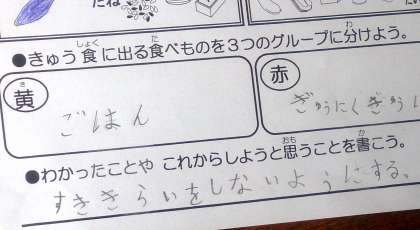 たね
●きゅう食に出る食べものを3つのグループに分けよう。
黄
ごはん
赤
ぎゅうにくぎゅう
●わかったことや これからしようと思うことを書こう。
すききらいをしないようにする。